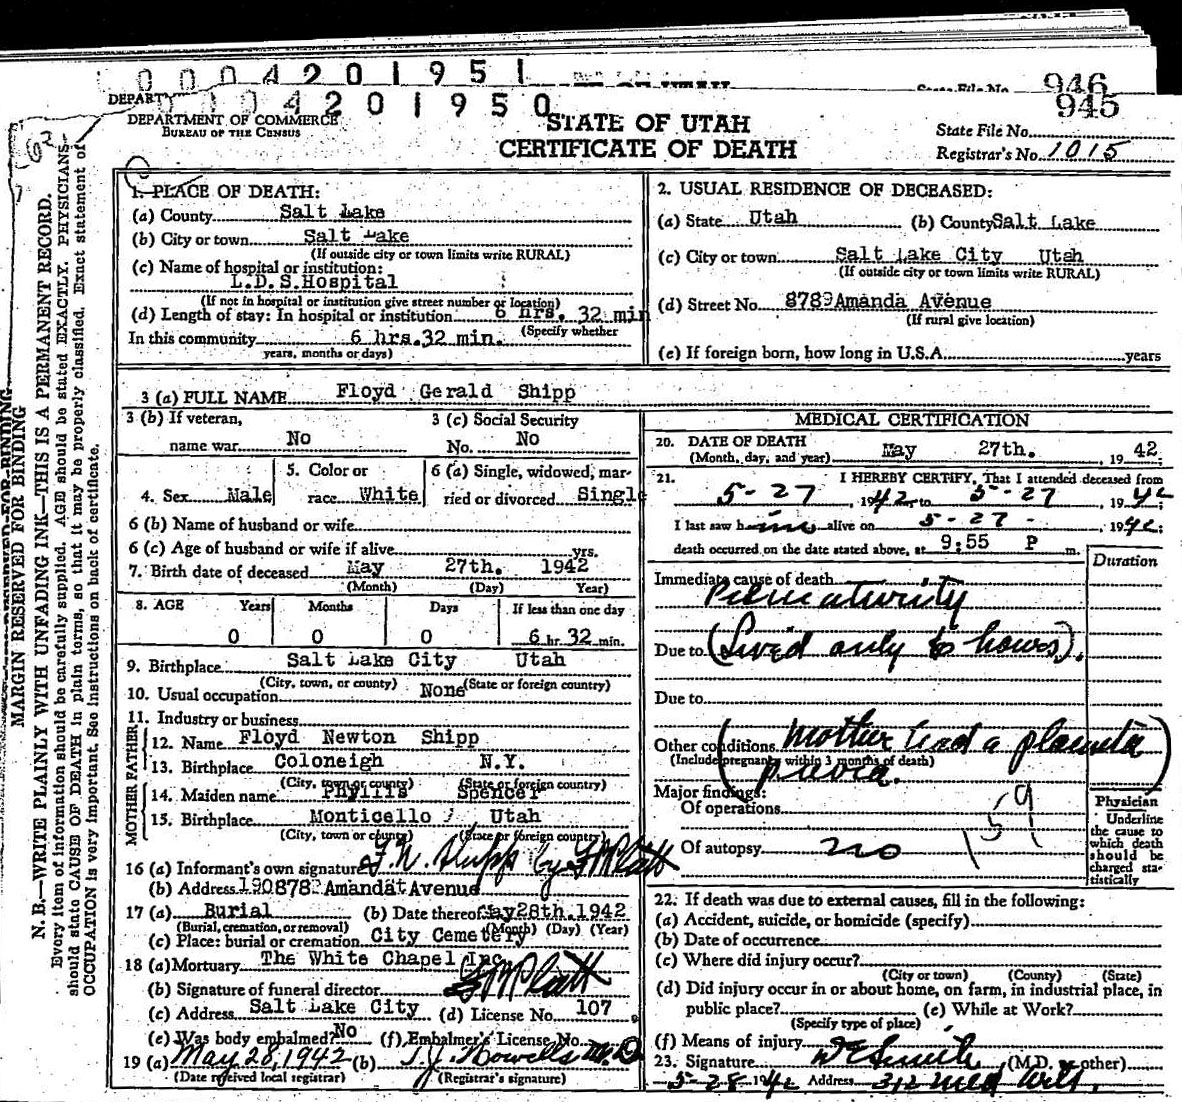 0004201951
946
DEPARTY 0004201950
945
DEPARTMENT OF COMMERCE
BUREAU OF THE CENSUS
STATE OF UTAH
CERTIFICATE OF DEATH
State File No.
Registrar's No. 1015
MARGIN RESERVED FOR BINDING
N. B.—WRITE PLAINLY WITH UNFADING INK—THIS IS A PERMANENT RECORD.
Every item of information should be carefully supplied. AGE should be stated EXACTLY. PHYSICIANS
should state CAUSE OF DEATH in plain terms, so that it may be properly classified. Exact statement of
OCCUPATION is very important. See instructions on back of certificate.
1. PLACE OF DEATH:
(a) County Salt Lake
(b) City or town Salt Lake
(If outside city or town limits write RURAL)
(c) Name of hospital or institution:
L.D.S.Hospital
(If not in hospital or institution give street number or location)
(d) Length of stay: In hospital or institution 6 hrs. 32 min
(Specify whether
In this community 6 hrs.32 min.
years, months or days)
2. USUAL RESIDENCE OF DECEASED:
(a) State Utah (b) County Salt Lake
(c) City or town Salt Lake City Utah
(If outside city or town limits write RURAL)
(d) Street No. Amanda Avenue
(If rural give location)
(e) If foreign born, how long in U.S.A. years
3 (a) FULL NAME Floyd Gerald Shipp
3 (b) If veteran,
name war No
3 (c) Social Security
No. No
4. Sex Male
5. Color or
race White
6 (a) Single, widowed, mar-
ried or divorced Single
6 (b) Name of husband or wife
6 (c) Age of husband or wife if alive yrs.
7. Birth date of deceased May 27th. 1942
(Month) (Day) Year)
8. AGE Years Months Days If less than one day
0 0 0 6 hr. 32 min.
9. Birthplace Salt Lake City Utah
(City, town, or county) (State or foreign country)
10. Usual occupation None
11. Industry or business
FATHER
12. Name Floyd Newton Shipp
13. Birthplace Coloneigh N.Y.
(City, town or county) (State or foreign country)
MOTHER
14. Maiden name Phyllis Spencer
15. Birthplace Monticello Utah
(City, town or county) (State or foreign country)
16 (a) Informant's own signature F. N. Shipp by
(b) Address Amanda Avenue
17 (a) Burial (b) Date thereof May 28th.1942
(Burial, cremation, or removal) (Month) (Day) (Year)
(c) Place: burial or cremation City Cemetery
18 (a) Mortuary The White Chapel Inc
(b) Signature of funeral director
(c) Address Salt Lake City (d) License No. 107
(e) Was body embalmed? No (f) Embalmer's License No.
19 (a) May 28, 1942 (b) T.J. Howells M.D.
(Date received local registrar) (Registrar's signature)
MEDICAL CERTIFICATION
20. DATE OF DEATH May 27th. 19 42
(Month, day, and year)
21. I HEREBY CERTIFY, That I attended deceased from
5-27, 1942, to 5-27, 1942
I last saw him alive on 5-27-, 1942;
death occurred on the date stated above, at 9:55 P m.
Duration
Immediate cause of death
Prematurity
Due to (Lived only 6 hours).
Due to
Other conditions (Mother had a placenta
(Include pregnancy within 3 months of death)
previa.)
Major findings:
Of operations
159
Of autopsy no
Physician
Underline
the cause to
which death
should be
charged sta-
tistically
22. If death was due to external causes, fill in the following:
(a) Accident, suicide, or homicide (specify)
(b) Date of occurrence
(c) Where did injury occur?
(City or town) (County) (State)
(d) Did injury occur in or about home, on farm, in industrial place, in
public place? (e) While at Work?
(Specify type of place)
(f) Means of injury
23. Signature (M.D. or other)
5-28-1942 Address 312 Med